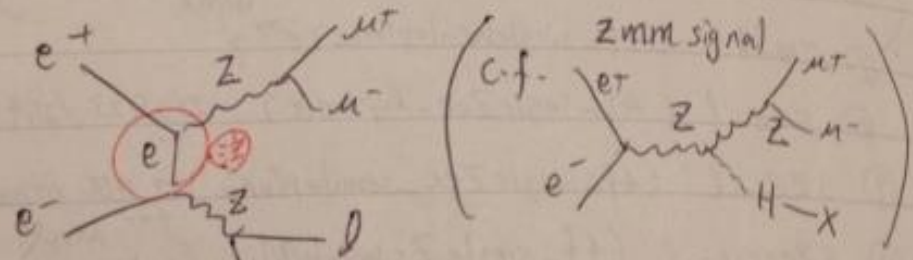 e+ Z μ+ μ-
e
e- Z l
(c.f. Zmm signal)
e+ Z μ+ Z μ-
e- H-X